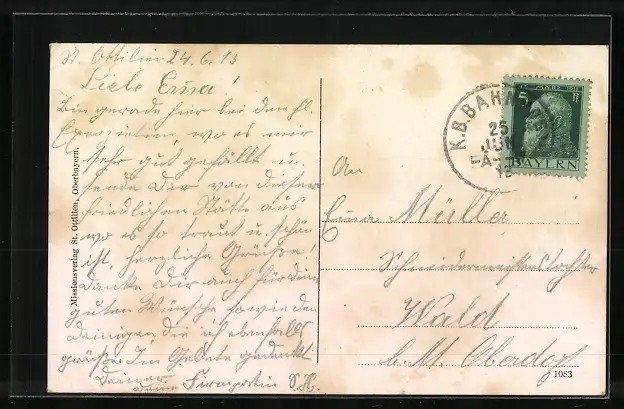 St. Ottilien 24.6.13
Liebe Emma!
Bin gerade hier bei den hl.
Exerzitien, wo es mir
sehr gut gefällt u.
sende Dir von dieser
friedlichen Stätte aus
wo es so traut u. schön
ist, herzliche Grüße!
Danke Dir auch für Deine
guten Wünsche sowie den
Deinigen die ich ebenfalls
grüße. Im Gebete gedenkt
Deiner
Deine Firmpatin S. H.
Missionsverlag St. Ottilien, Oberbayern.
K.B.BAHNPOST
25
JUN
13
5 MÄRZ 1911 PF
BAYERN
An
Emma Müller
Schneidermeisterstochter
Wald
b. M. Oberdorf
1083